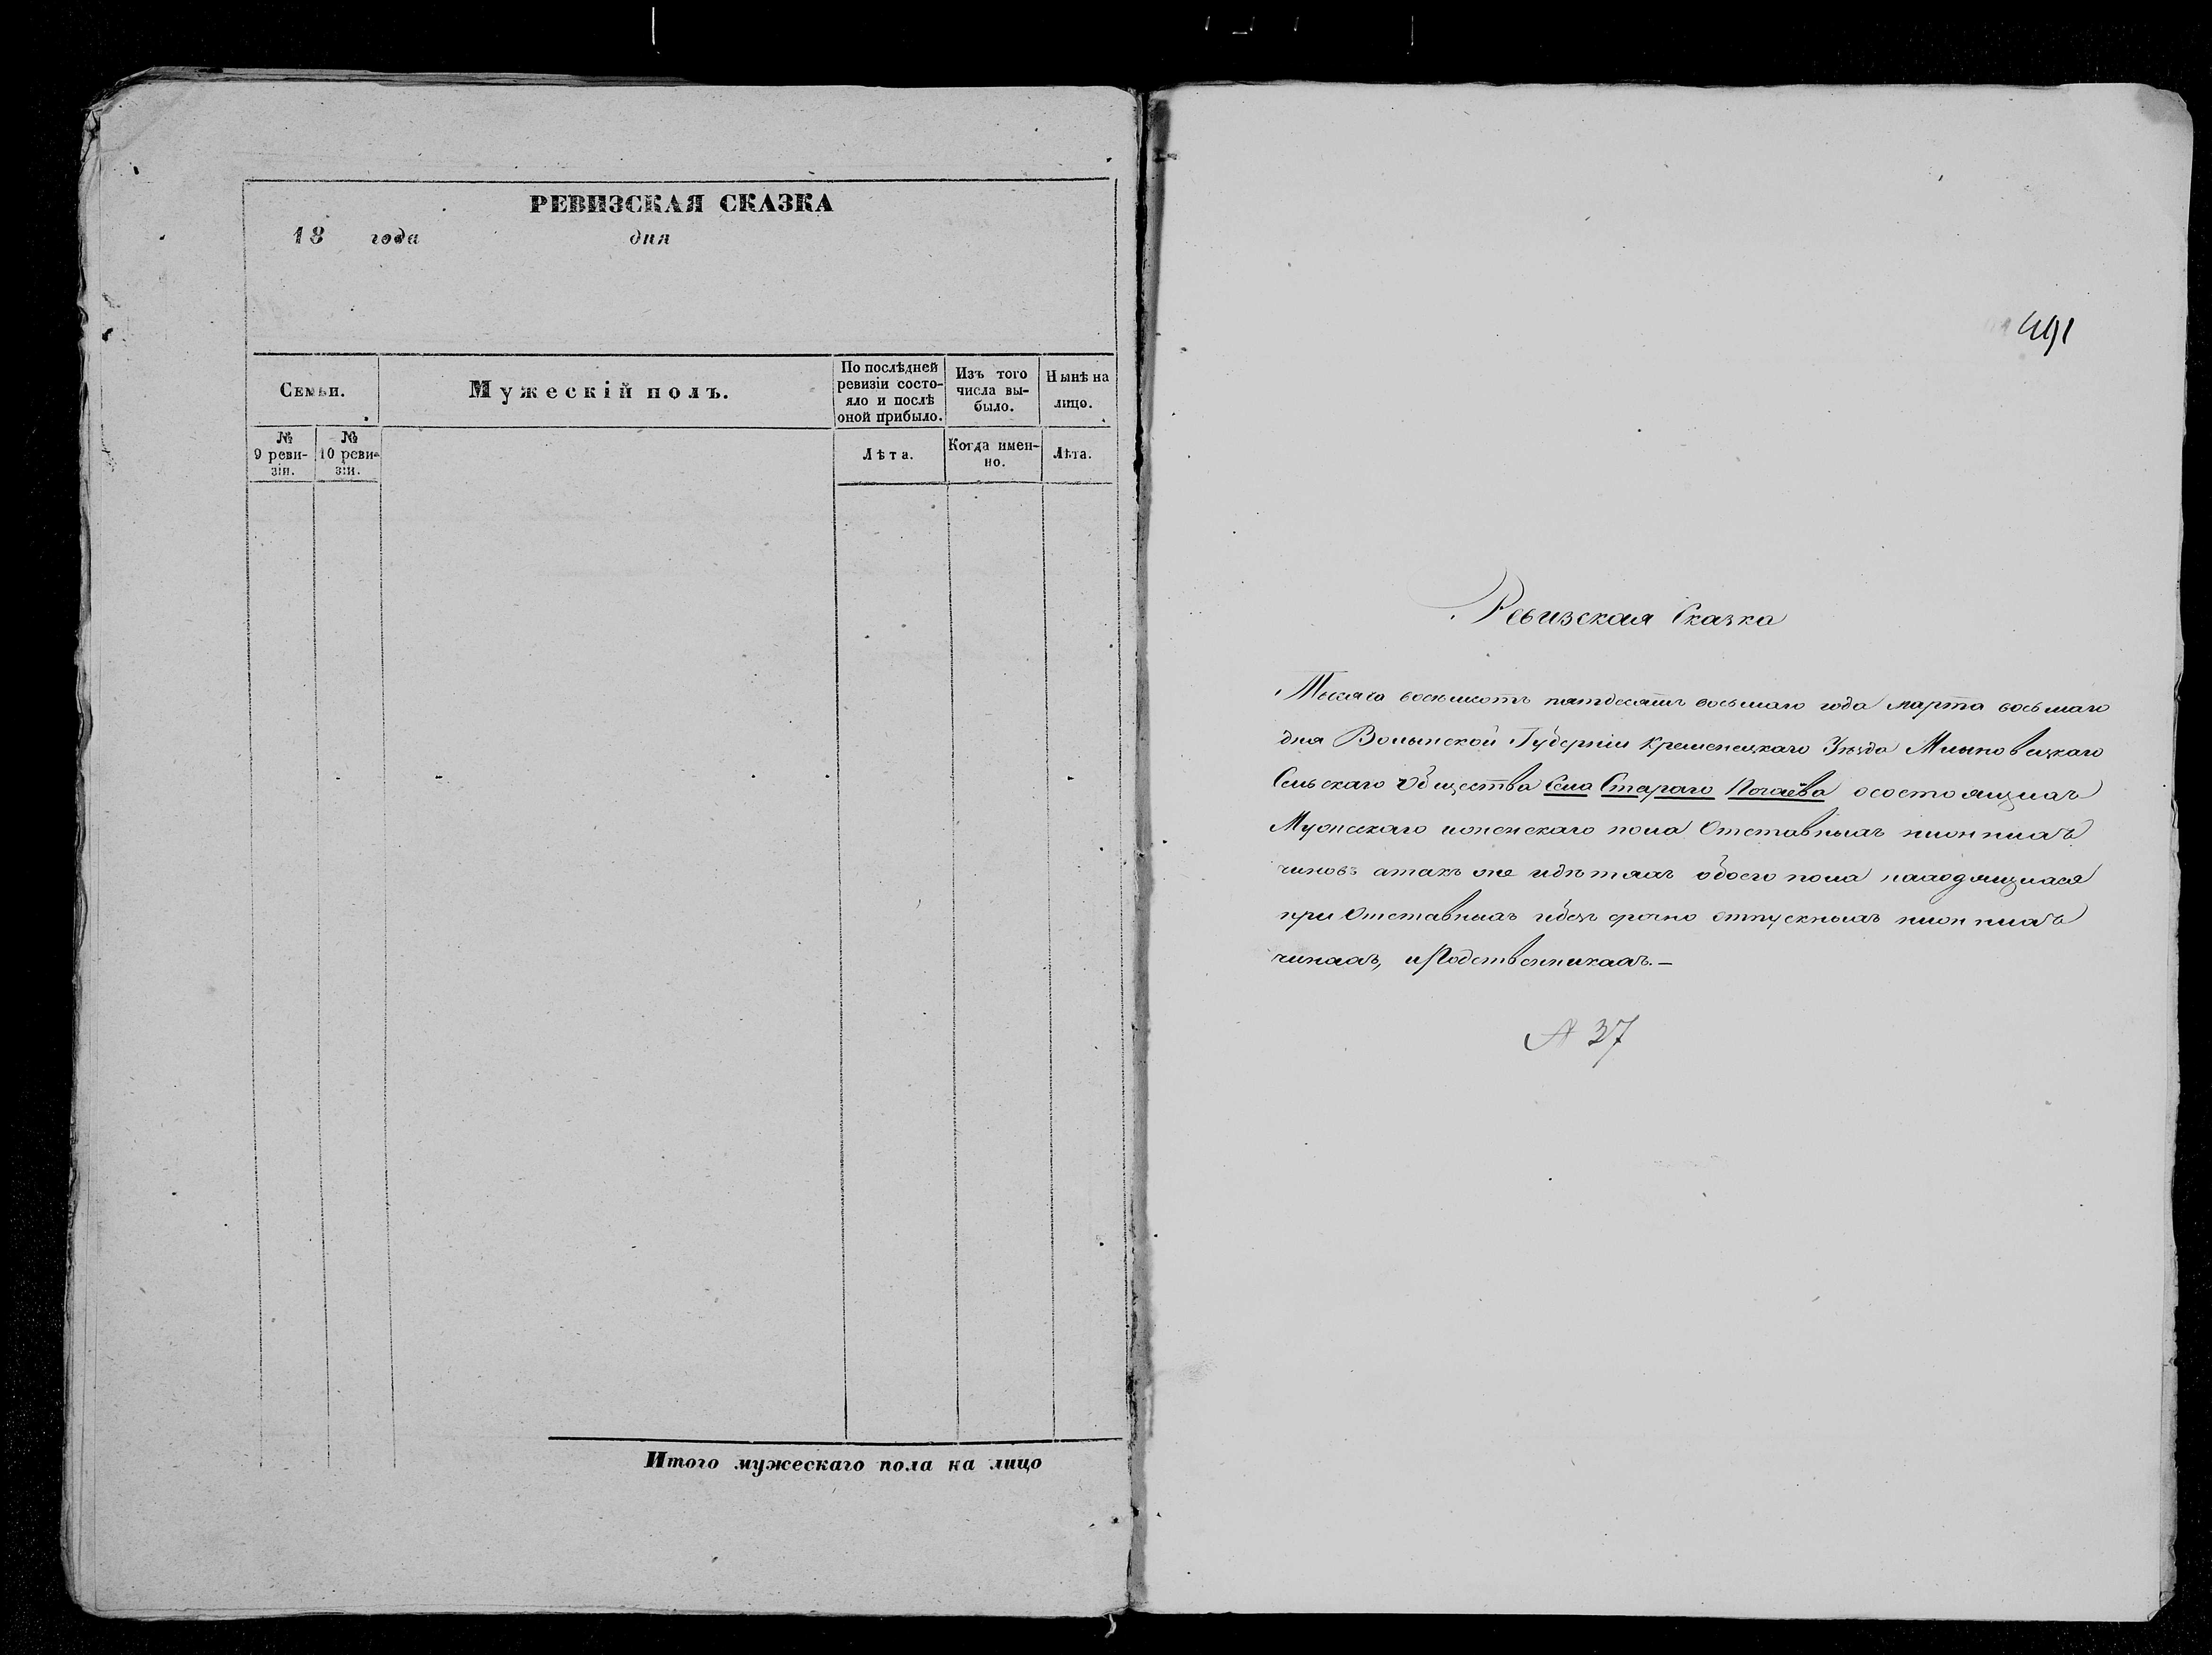 РЕВИЗСКАЯ СКАЗКА
18 года дня
Семьи.
Мужескій полъ.
По послѣдней
ревизіи состо-
яло и послѣ
оной прибыло.
Изъ того
числа вы-
было.
Нынѣ на
лицо.
№
9 реви-
зіи.
№
10 реви-
зіи.
Лѣта.
Когда имен-
но.
Лѣта.
Итого мужескаго пола на лицо
491
Ревизская Сказка
Тысяча восемьсотъ пятдесятъ восьмаго года марта восьмаго
дня Волынской Губерніи Кременецкаго Уѣзда Млыновецкаго
Сельскаго Общества Села Стараго Почаёва осостоящихъ
Мужескаго иженскаго пола Отставныхъ нижнихъ
чиновъ атакъ же идѣтяхъ обоего пола находящихся
при Отставныхъ ибезъ срочно отпускныхъ нижнихъ
чинахъ, иРодственникахъ.—
№ 37